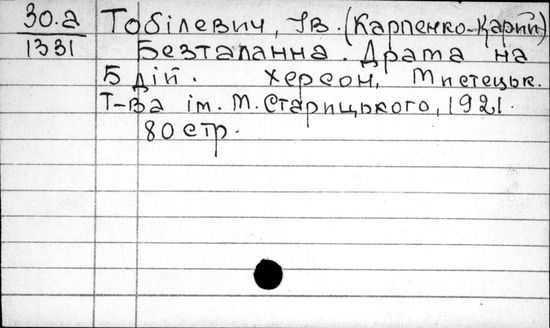 30.а Тобілевич, Ів. (Карпенко-Карий)
1331 Безталанна. Драма на
5 дій. Херсон, Мистецьк.
Т-ва ім. М. Старицького, 1921.
80 стр.